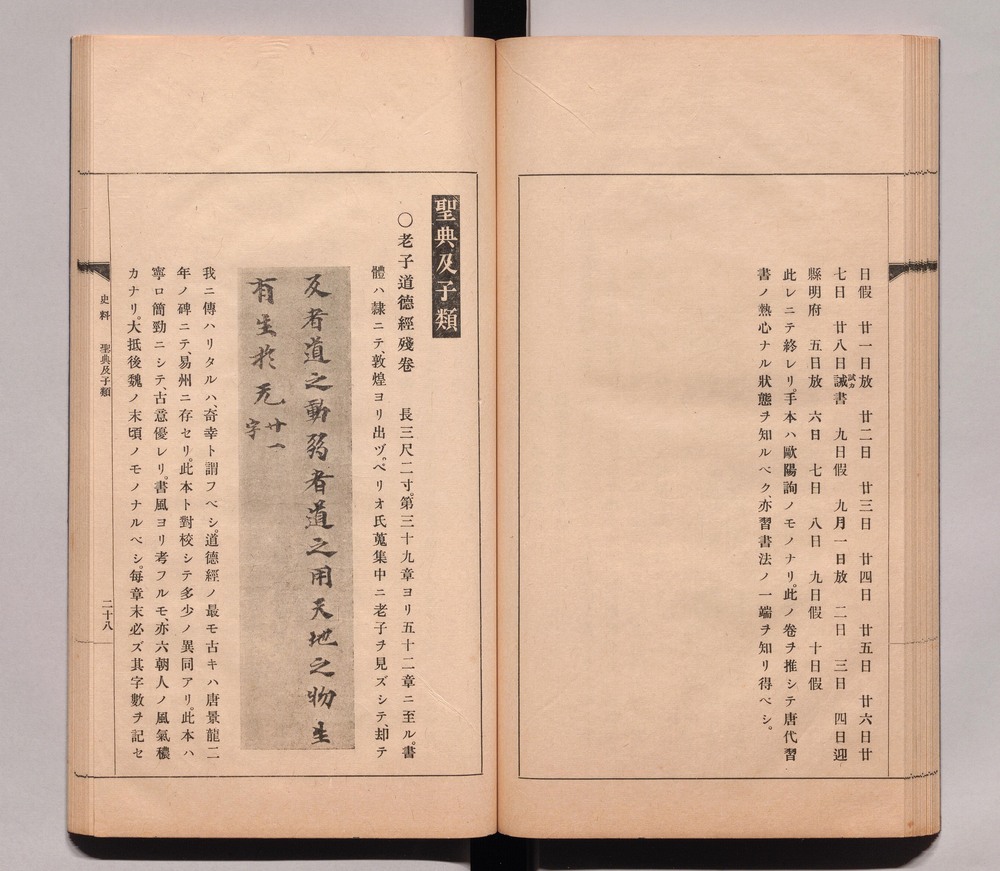 日假　廿一日放　廿二日　廿三日　廿四日　廿五日　廿六日廿
七日　廿八日誡書　九日假　九月一日放　二日　三日　四日迎
試カ
縣明府　五日放　六日　七日　八日　九日假　十日假
此レニテ終レリ。手本ハ歐陽詢ノモノナリ。此ノ卷ヲ推シテ唐代習
書ノ熱心ナル狀態ヲ知ルベク、亦習書法ノ一端ヲ知リ得ベシ。
聖典及子類
〇老子道德經殘卷　長三尺二寸。第三十九章ヨリ五十二章ニ至ル。書
體ハ隷ニテ、敦煌ヨリ出ヅ。ペリオ氏蒐集中ニ老子ヲ見ズシテ、却テ
反者道之動弱者道之用天地之物生
有生於无 廿一
字
我ニ傳ハリタルハ、奇幸ト謂フベシ。道德經ノ最モ古キハ唐景龍二
年ノ碑ニテ、易州ニ存セリ。此本ト對校シテ多少ノ異同アリ。此本ハ
寧ロ簡勁ニシテ、古意優レリ。書風ヨリ考フルモ、亦六朝人ノ風氣穠
カナリ。大抵後魏ノ末頃ノモノナルベシ。每章末必ズ其字數ヲ記セ
史料　聖典及子類
二十八